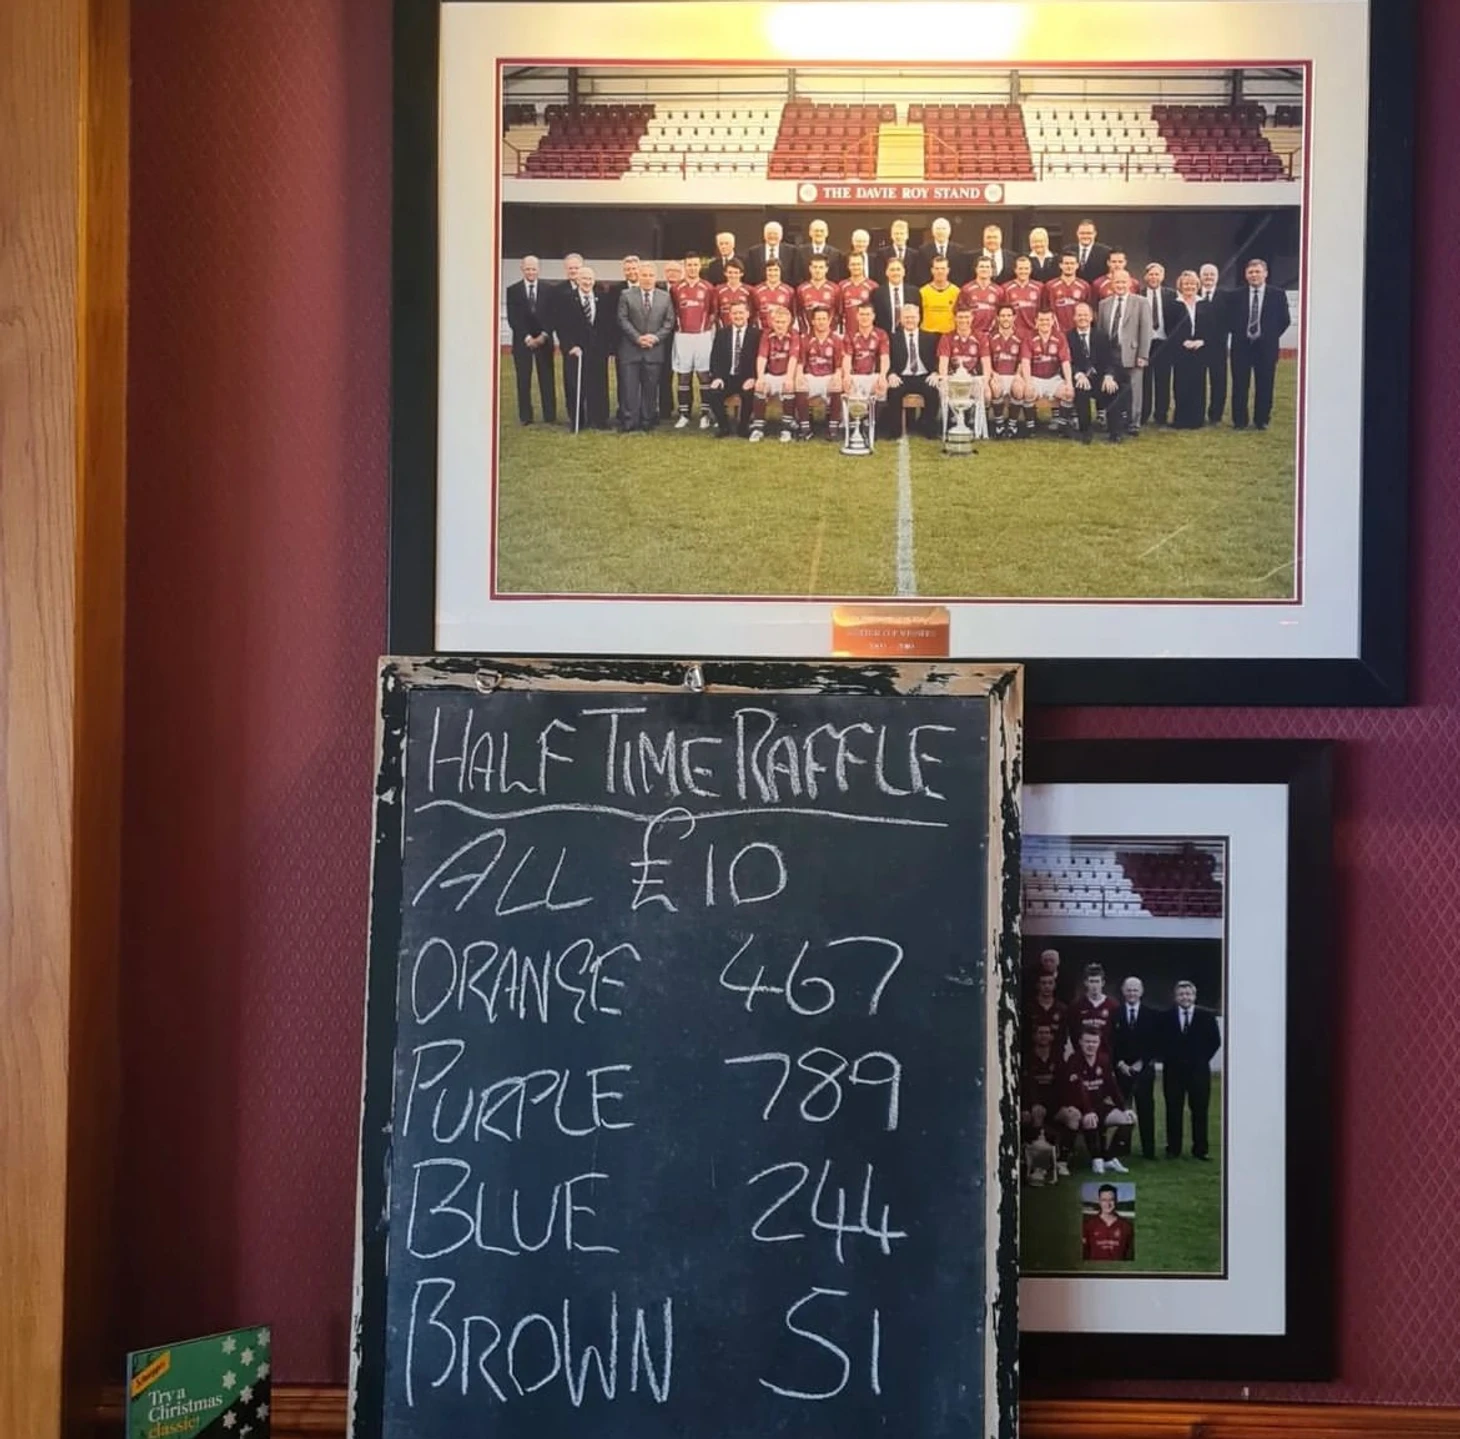 THE DAVIE ROY STAND
HALF TIME RAFFLE
ALL £10
ORANGE 467
PURPLE 789
BLUE 244
BROWN 51
Schweppes
Try a
Christmas
classic!